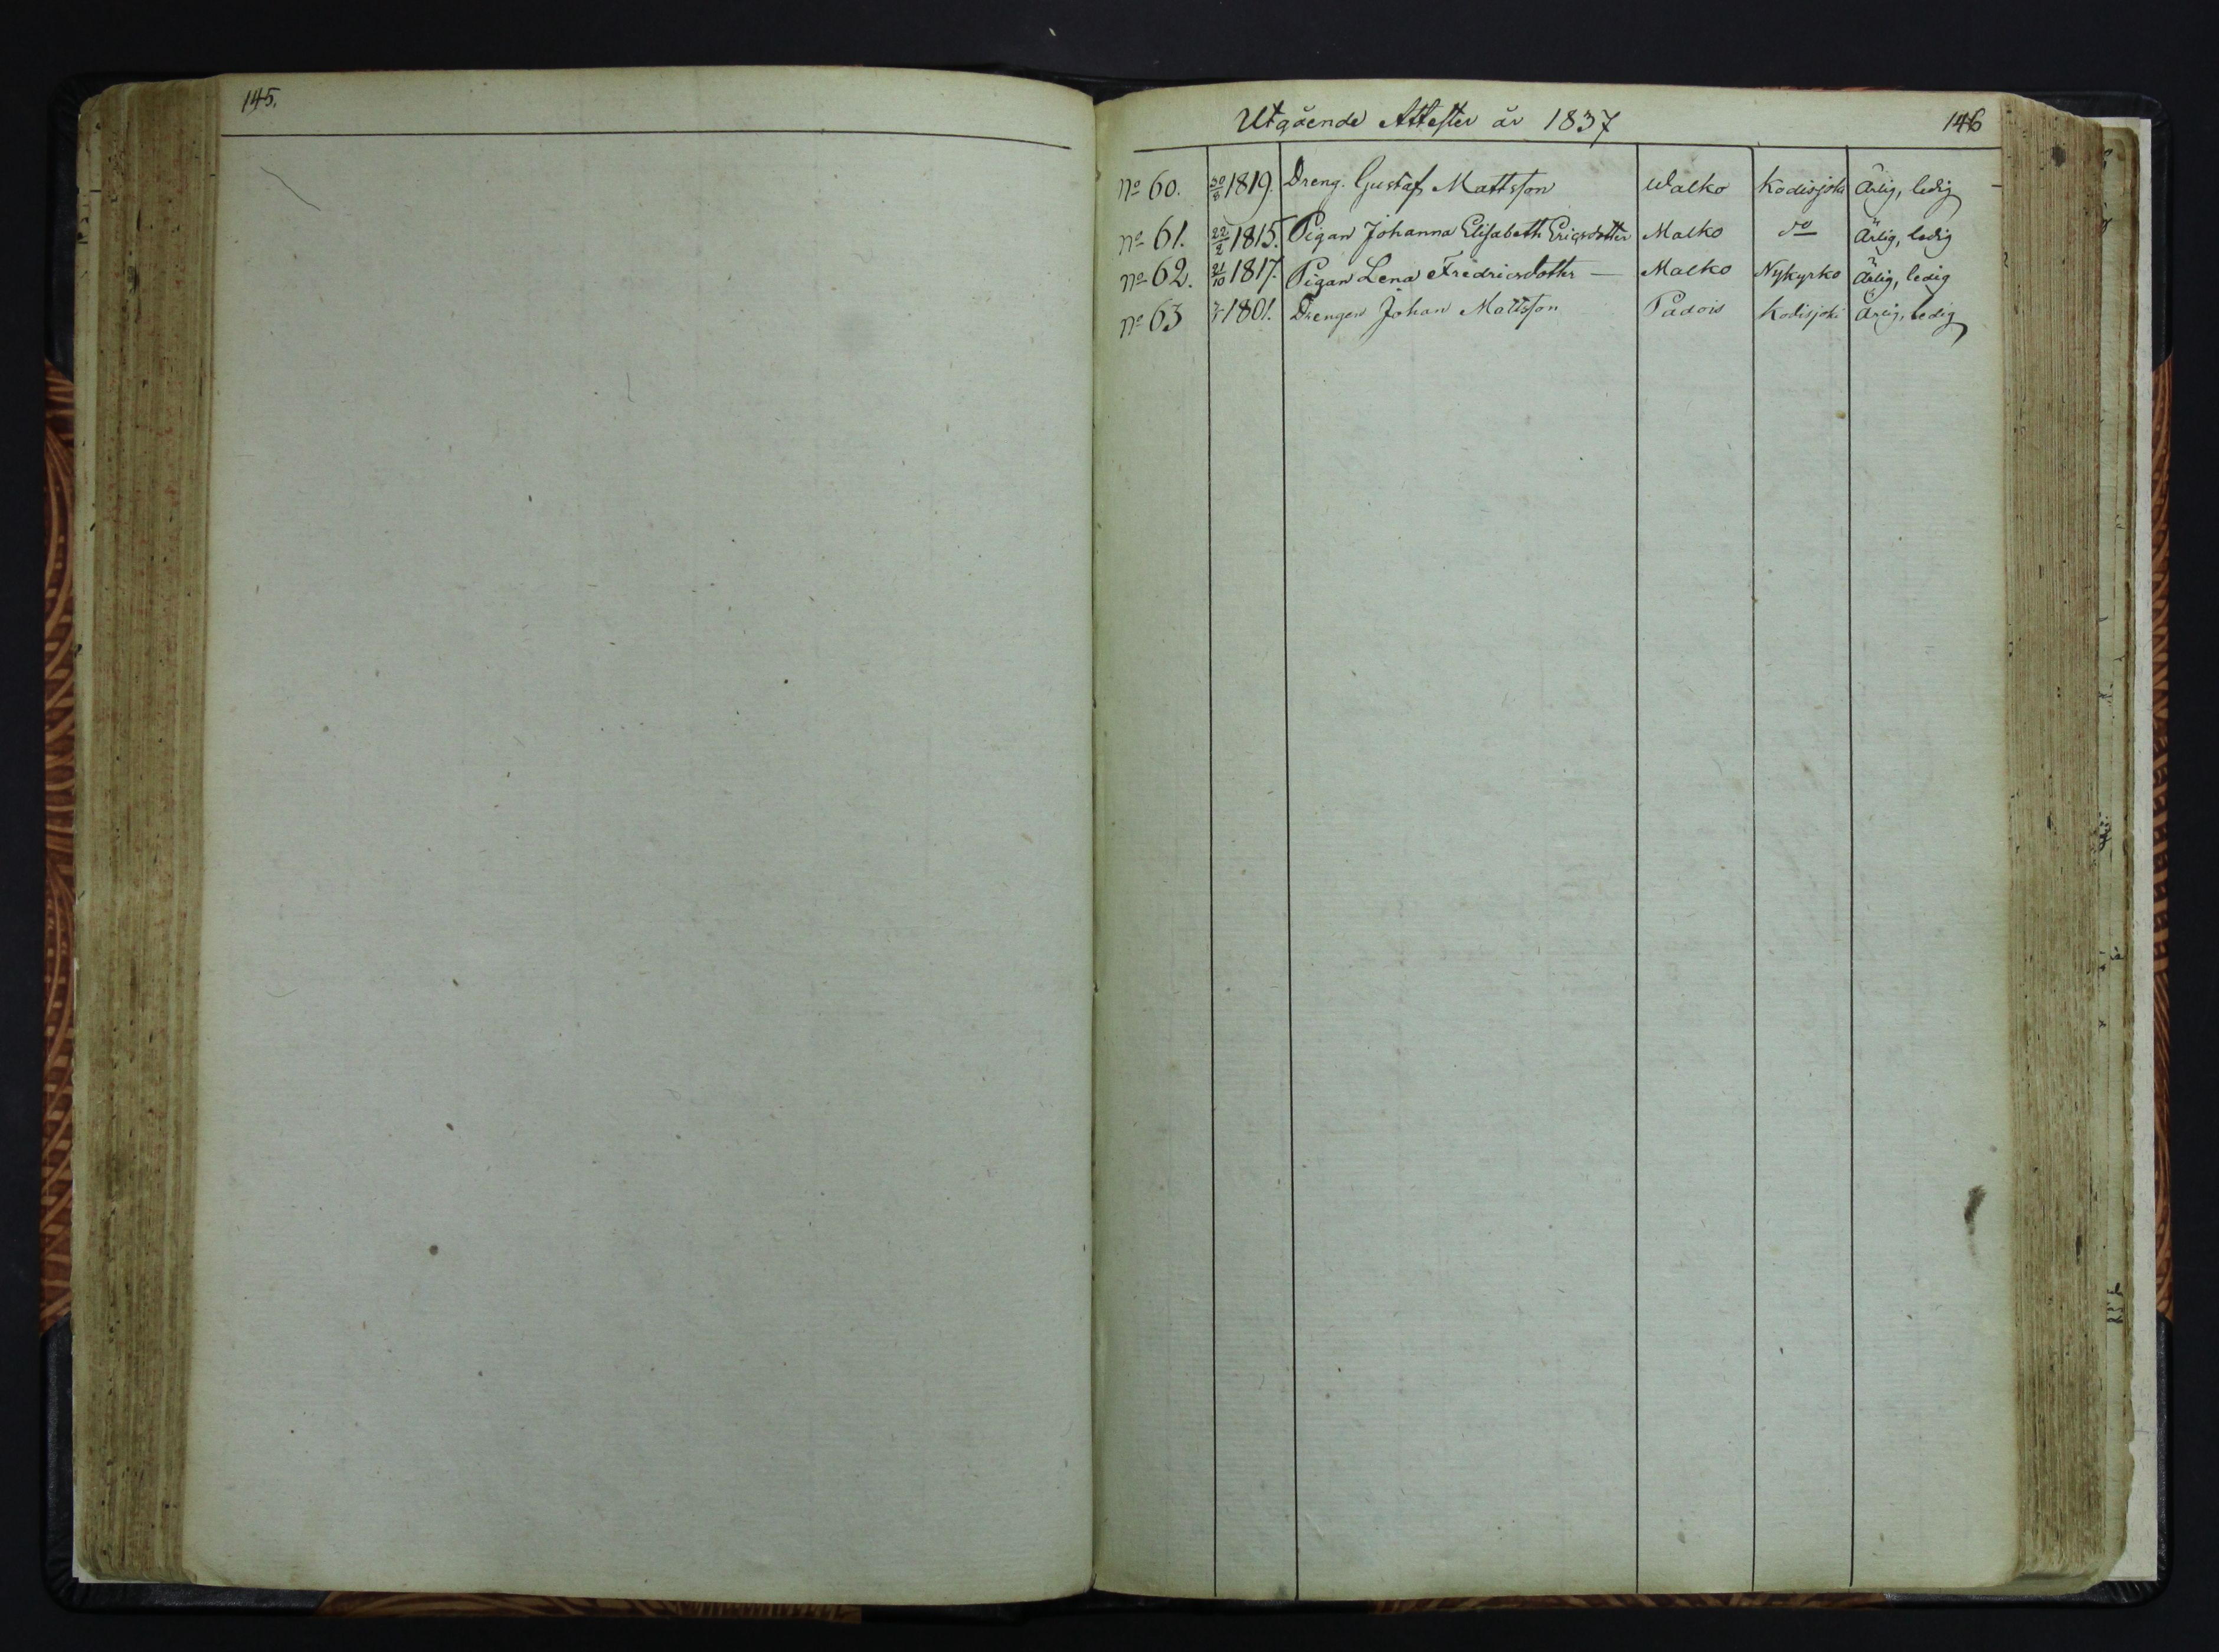 145.
Utgående Attester år 1837
146
No 60. 30/8 1819. Dreng. Gustaf Mattsson Walko Kodisjoki Ärlig, ledig
No 61. 22/2 1815. Pigan Johanna Elisabeth Ericsdotter Malko do Ärlig, ledig
No 62. 21/10 1817. Pigan Lena Fredricsdotter — Malko Nykyrko Ärlig, ledig
No 63 1801. Drengen Johan Mattsson Padois Kodisjoki Ärlig, ledig